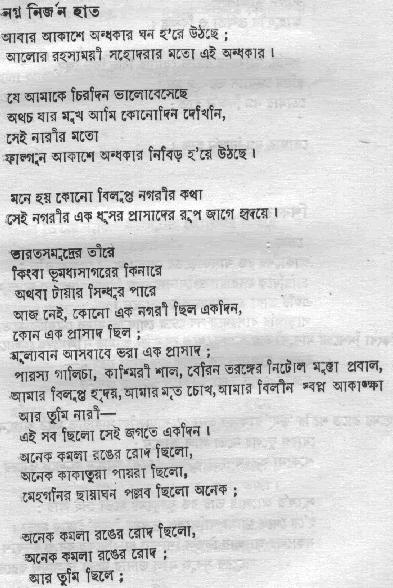 নগ্ন নির্জন হাত
আবার আকাশে অন্ধকার ঘন হ'রে উঠছে ;
আলোর রহস্যময়ী সহোদরার মতো এই অন্ধকার ।
যে আমাকে চিরদিন ভালোবেসেছে
অথচ যার মুখ আমি কোনোদিন দেখিনি,
সেই নারীর মতো
ফাল্গুন আকাশে অন্ধকার নিবিড় হ'য়ে উঠছে ।
মনে হয় কোনো বিলুপ্ত নগরীর কথা
সেই নগরীর এক ধূসর প্রাসাদের রূপ জাগে হৃদয়ে ।
ভারতসমুদ্রের তীরে
কিংবা ভূমধ্যসাগরের কিনারে
অথবা টায়ার সিন্ধুর পারে
আজ নেই, কোনো এক নগরী ছিল একদিন,
কোন এক প্রাসাদ ছিল ;
মূল্যবান আসবাবে ভরা এক প্রাসাদ ;
পারস্য গালিচা, কাশ্মিরী শাল, বেরিন তরঙ্গের নিটোল মুক্তা প্রবাল,
আমার বিলুপ্ত হৃদয়, আমার মৃত চোখ, আমার বিলীন স্বপ্ন আকাঙ্ক্ষা
আর তুমি নারী—
এই সব ছিলো সেই জগতে একদিন ।
অনেক কমলা রঙের রোদ ছিলো,
অনেক কাকাতুয়া পায়রা ছিলো,
মেহগনির ছায়াঘন পল্লব ছিলো অনেক ;
অনেক কমলা রঙের রোদ ছিলো,
অনেক কমলা রঙের রোদ ;
আর তুমি ছিলে ;